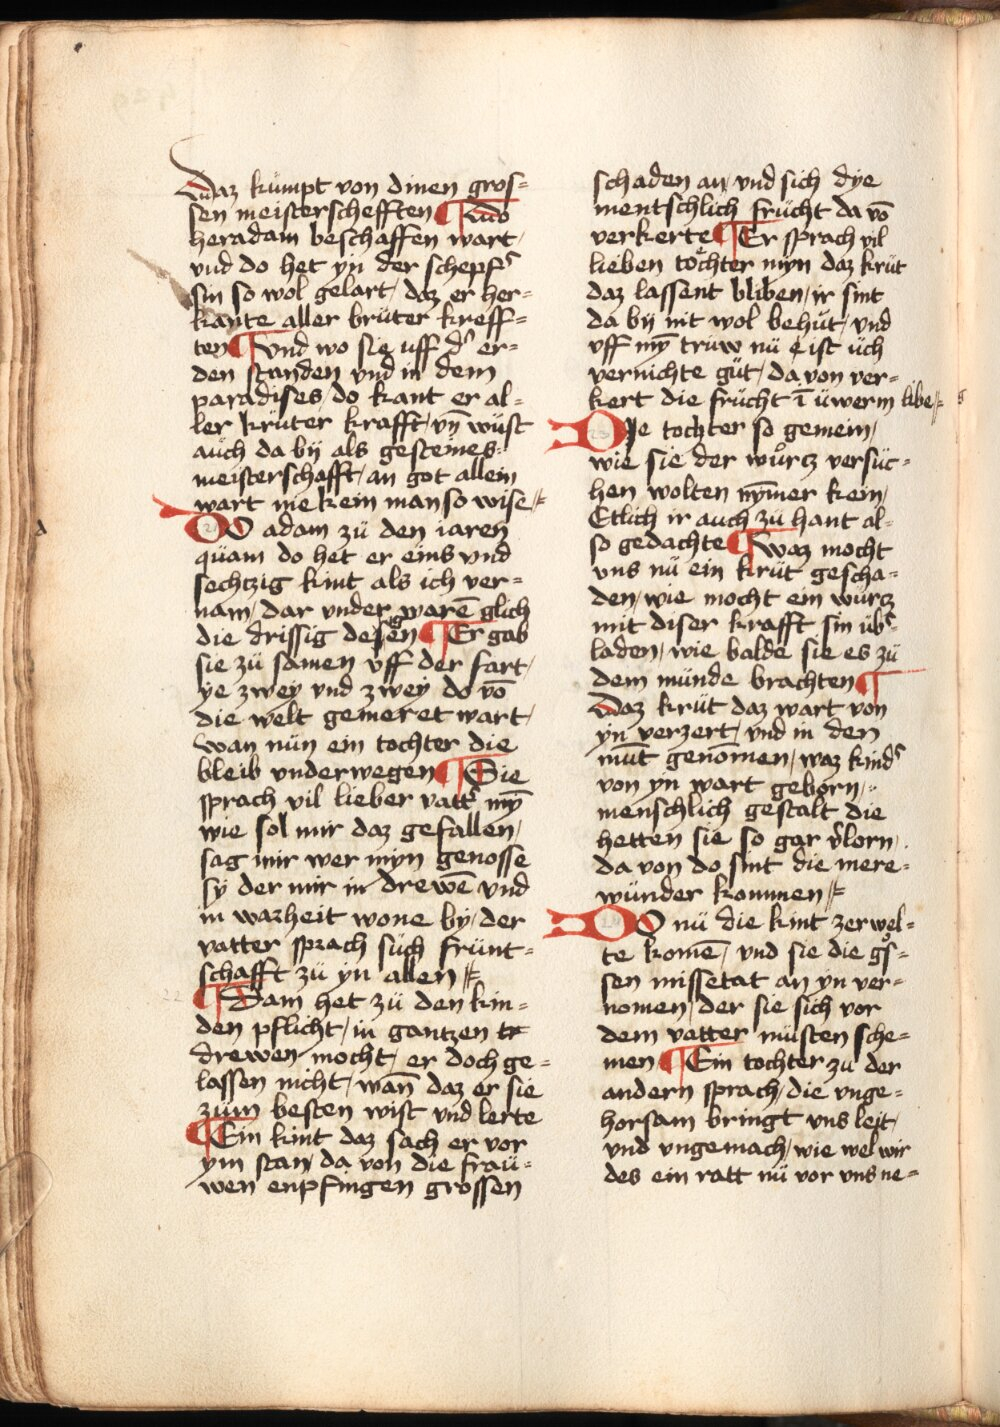 daz kümpt von dinen gros=
sen meisterschefften ¶ Wo
heradam beschaffen wart/
vnd do het yn der schepf᷒
sin so wol gelart/ daz er her=
kante aller brüter kreff=
ten ¶ Vnd wo sie uff d᷒ er=
den standen vnd in dem
paradises/ do kant er al=
ler krüter krafft/ vn̄ wüst
auch da bij als gesteines
meisterschafft/ an got allein
wart nie kein man so wise
DO adam zü den iaren
quam do het er eins vnd
sechtzig kint als ich ver=
nam/ dar vnder warē glich
die drissig degen ¶ Er gab
sie zü samen vff der fart/
ye zwey vnd zwey do vō
die welt gemeret wart/
wan nün ein tochter die
bleib vnderwegen ¶ Sie
sprach vil lieber vatt᷒ mȳ
wie sol mir daz gefallen/
sag mir wer myn genosse
sy der mir in drewē vnd
in warheit wone by/ der
vatter sprach süch frünt=
schafft zü yn allen
22 ¶ Adam het zü den kin=
den pflicht/ in gantzen tr
drewen mocht/ er doch ge=
lassen nicht/ wan̄ daz er sie
züm besten wist vnd lerte
¶ Ein kint daz sach er vor
ym stan/ da von die fraü=
wen enpfingen grossen
schaden an vnd sich dye
mentschlich frücht da vō
verkerte ¶ Er sprach vil
lieben töchter myn daz krüt
daz lassent bliben/ ir sint
da bij nit wol behüt/ vnd
vff mȳ truw nü e ist üch
vernichte güt/ da von ver=
kert die frücht ī üwerm libe
DIe tochter so gemein/
wie sie der wuͦrtz versüc=
hen wolten nȳmer kein/
Etlich ir auch zü hant al=
so gedachte ¶ Waz mocht
vns nü ein krüt gescha=
den/ wie mocht ein würtz
mit diser krafft sin üb᷒=
laden/ wie balde sie es zü
dem münde brachten ¶
Daz krüt daz wart von
yn verzert/ vnd in den
müt genōmen/ waz kind᷒
von yn wart geborn/
menschlich gestalt die
hetten sie so gar v᷒lorn/
da von do sint die mere=
wünder kommen
DO nü die kint zer wel=
te komē/ vnd sie die gͦs=
sen missetat an yn ver=
nomen/ der sie sich vor
dem vatter müsten sche=
men ¶ Ein tochter zu der
andern sprach/ die vnge=
horsam bringt vns leit/
vnd vngemach/ wie wel wir
des ein ratt nü vor vns ne=